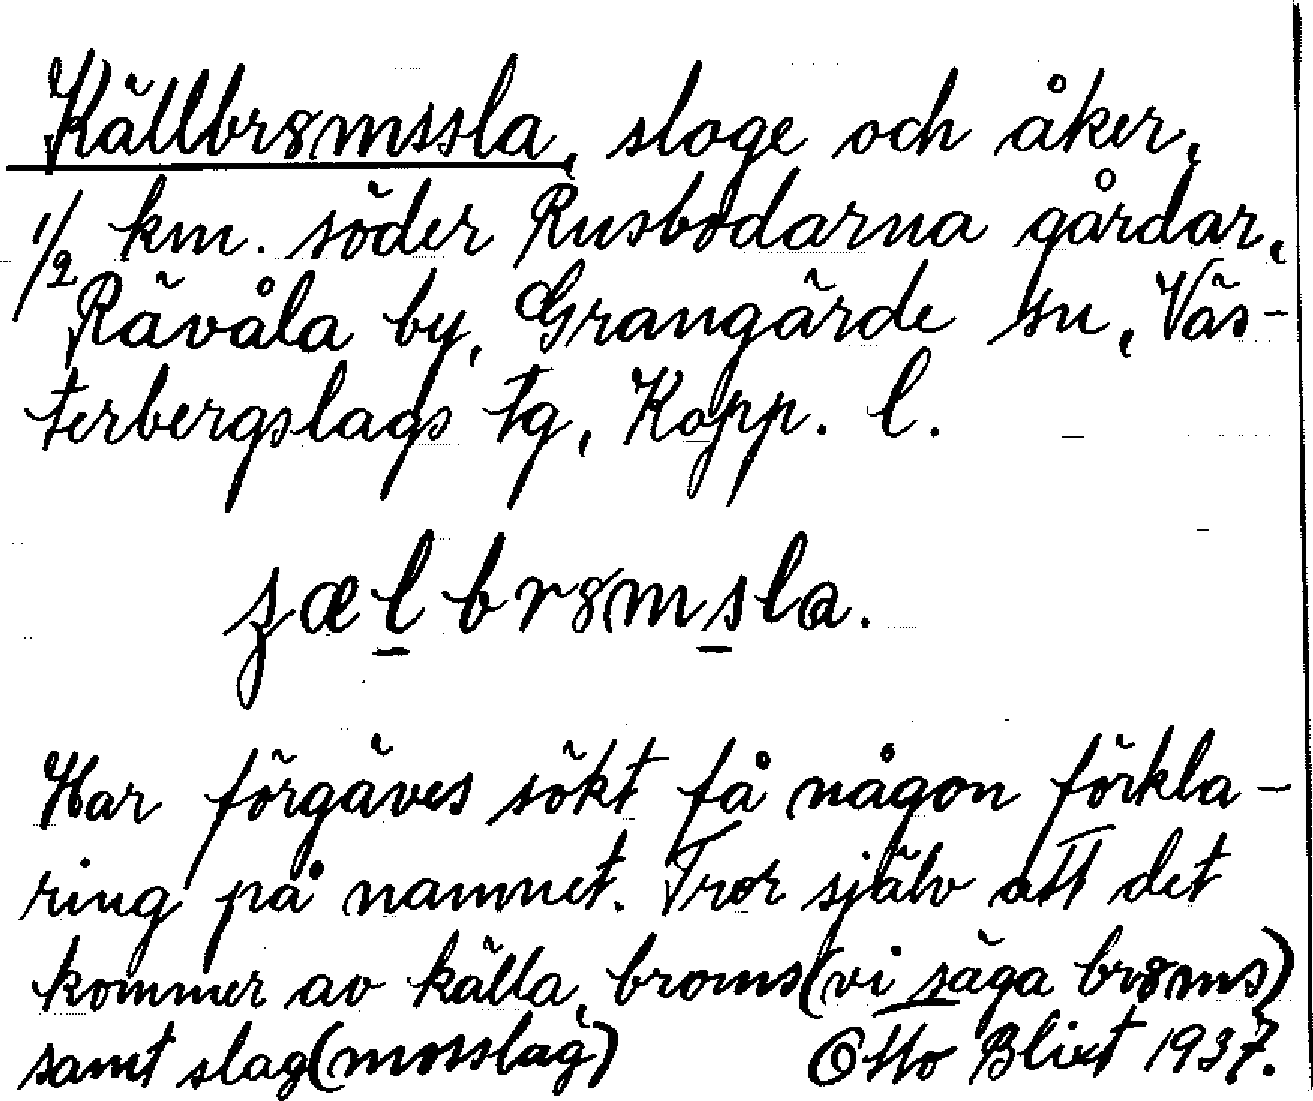 Källbr8mssla, sloge och åker,
1/2 km. söder Rusbodarna gårdar,
Rävåla by, Grangärde sn, Väs-
terbergslags tg, Kopp. l.
ʒælbr8msla.
Har förgäves sökt få någon förkla-
ring på namnet. Tror själv att det
kommer av källa, broms (vi säga br8ms)
samt slag (mosslag) Otto Blixt 1937.